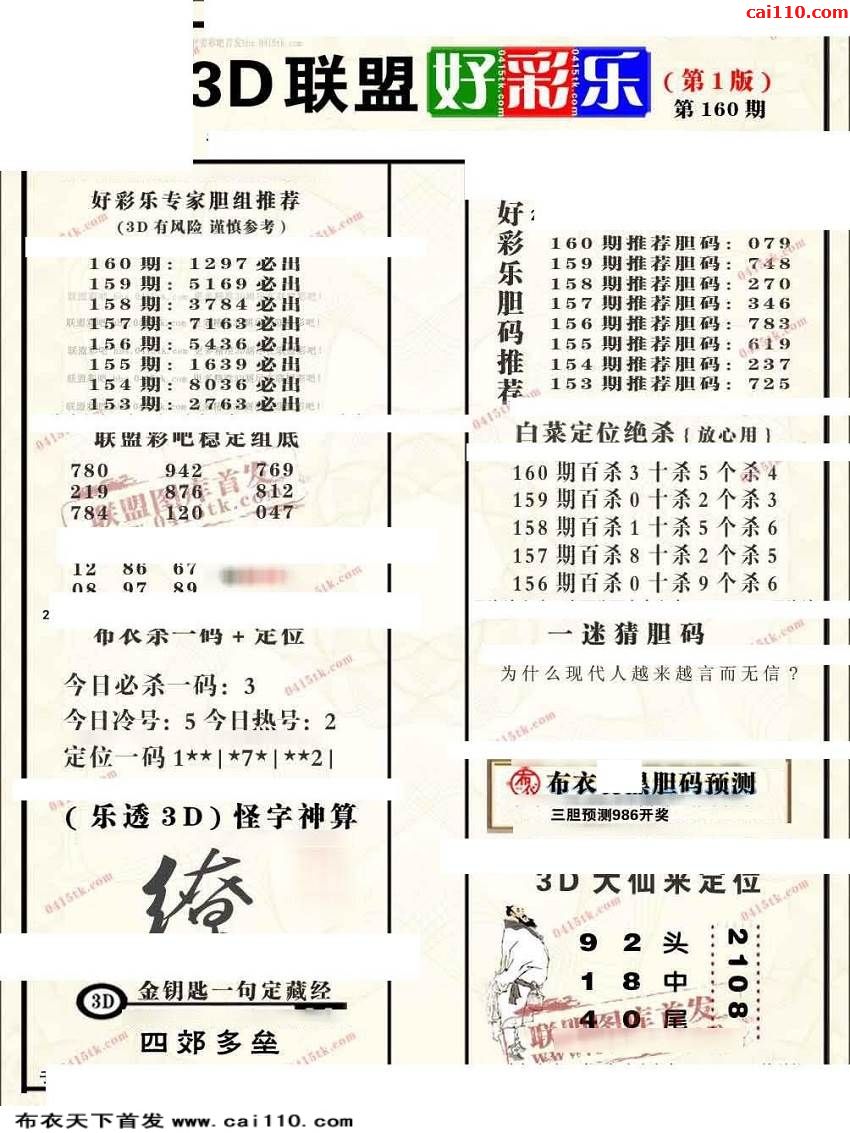 cai110.com
3D联盟好彩乐
(第1版)
第160期
好彩乐专家胆组推荐
(3D有风险 谨慎参考)
160期: 1297必出
159期: 5169必出
158期: 3784必出
157期: 7163必出
156期: 5436必出
155期: 1639必出
154期: 8036必出
153期: 2763必出
联盟彩吧稳定组底
780 942 769
219 876 812
784 120 047
12 86 67
08 97 89
布衣杀一码+定位
今日必杀一码: 3
今日冷号: 5 今日热号: 2
定位一码1**|*7*|**2|
(乐透3D)怪字神算
3D
金钥匙一句定藏经
四郊多垒
好彩乐胆码推荐
160期推荐胆码: 079
159期推荐胆码: 748
158期推荐胆码: 270
157期推荐胆码: 346
156期推荐胆码: 783
155期推荐胆码: 619
154期推荐胆码: 237
153期推荐胆码: 725
白菜定位绝杀{放心用}
160期百杀3十杀5个杀4
159期百杀0十杀2个杀3
158期百杀1十杀5个杀6
157期百杀8十杀2个杀5
156期百杀0十杀9个杀6
一迷猜胆码
为什么现代人越来越言而无信?
布衣 胆码预测
三胆预测986开奖
3D大仙来定位
92头
18中
40尾
2108
联盟图库首发
0415tk.com
布衣天下首发www.cai110.com